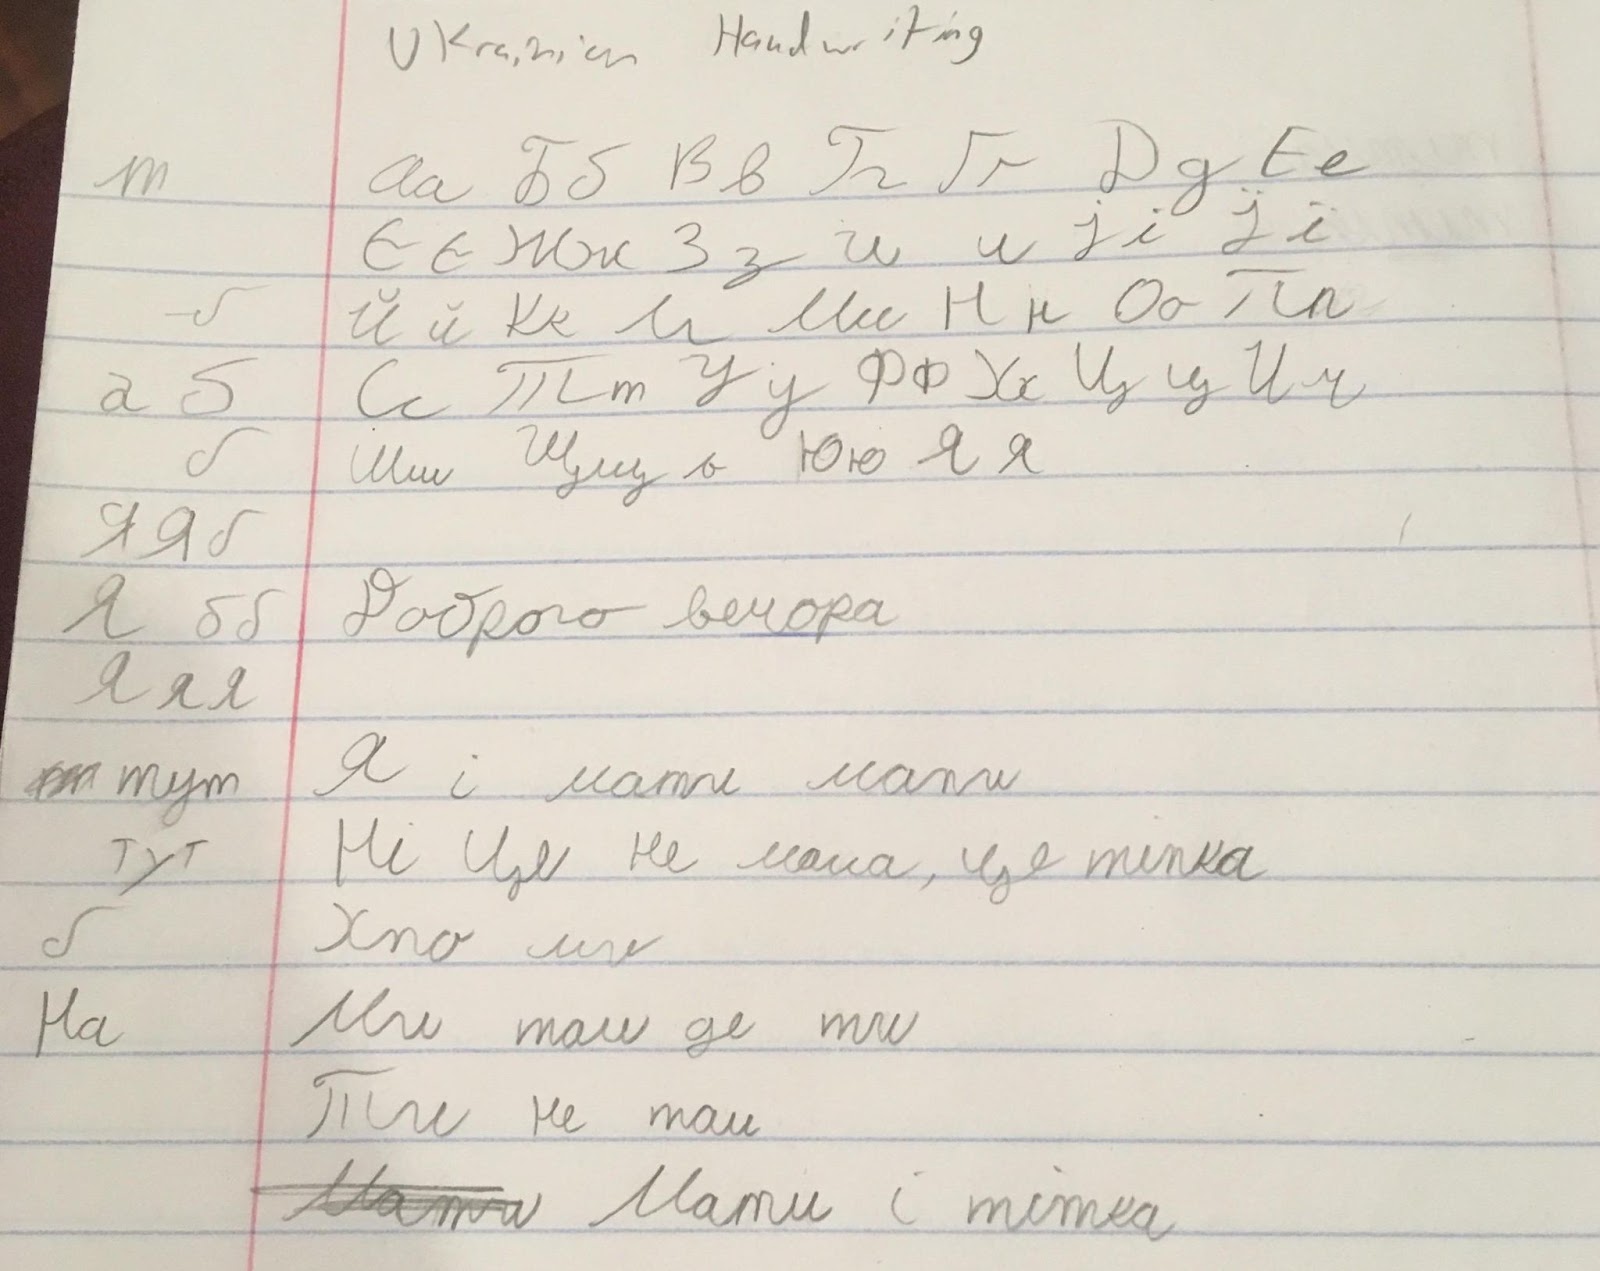 Ukrainian Handwriting
т Аа Бб Вв Гг Ґґ Дд Ее
Єє Жж Зз И и І і Ї ї
б Й й Кк Лл Мм Нн Оо Пп
а б Сс Тт Уу Фф Хх Цц Чч
б Шш Щщ ь Юю Яя
Я Я б
Я б б Доброго вечора
Я я я
тут Я і мати мати
тут Ні Це не мама, це тітка
б Хто ми
На Ми там де ти
Ти не там
Мати Мати і тітка